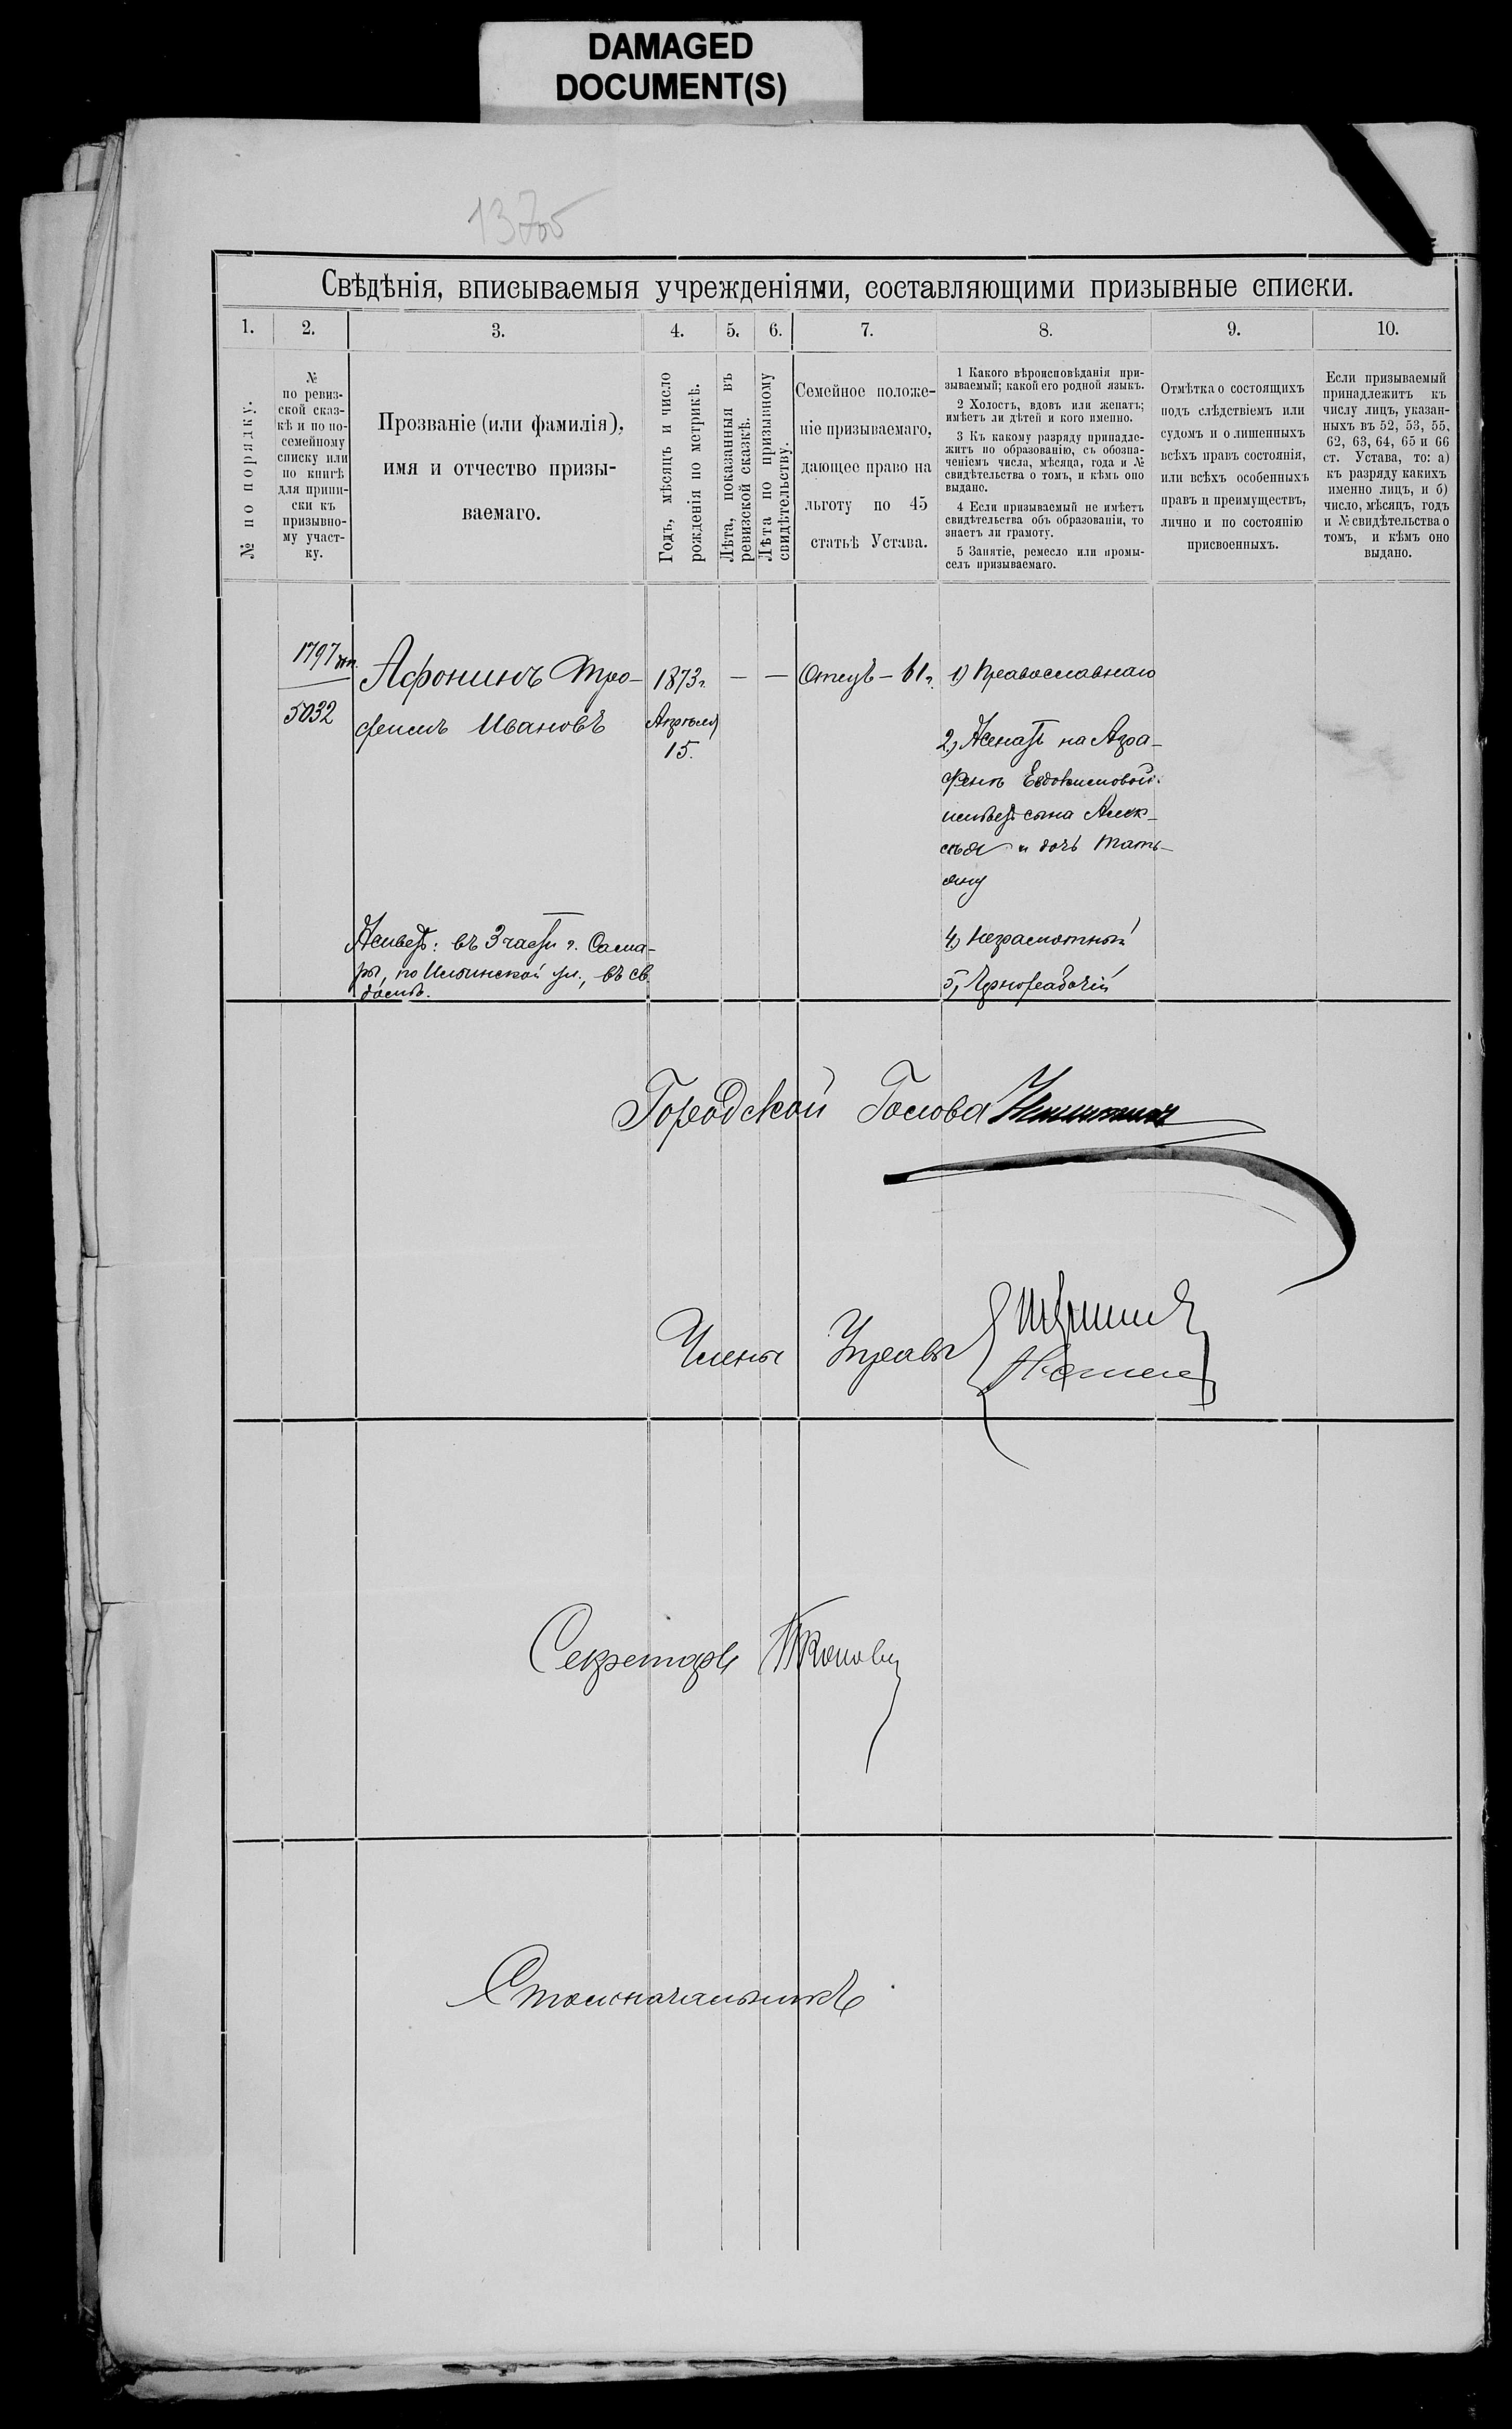 DAMAGED
DOCUMENT(S)
Свѣдѣнія, вписываемыя учрежденіями, составляющими призывные списки.
1. 2. 3. 4. 5. 6. 7. 8. 9. 10.
№ по порядку.
№
по ревиз-
ской сказ-
кѣ и по по-
семейному
списку или
по книгѣ
для припи-
ски къ
призывно-
му участ-
ку.
Прозваніе (или фамилія),
имя и отчество призы-
ваемаго.
Годъ, мѣсяцъ и число
рожденія по метрикѣ.
Лѣта, показанныя въ
ревизской сказкѣ.
Лѣта по призывному
свидѣтельству.
Семейное положе-
ніе призываемаго,
дающее право на
льготу по 45
статьѣ Устава.
1 Какого вѣроисповѣданія при-
зываемый; какой его родной языкъ.
2 Холостъ, вдовъ или женатъ;
имѣетъ ли дѣтей и кого именно.
3 Къ какому разряду принадле-
житъ по образованію, съ обозна-
ченіемъ числа, мѣсяца, года и №
свидѣтельства о томъ, и кѣмъ оно
выдано.
4 Если призываемый не имѣетъ
свидѣтельства объ образованіи, то
знаетъ ли грамоту.
5 Занятіе, ремесло или промы-
селъ призываемаго.
Отмѣтка о состоящихъ
подъ слѣдствіемъ или
судомъ и о лишенныхъ
всѣхъ правъ состоянія,
или всѣхъ особенныхъ
правъ и преимуществъ,
лично и по состоянію
присвоенныхъ.
Если призываемый
принадлежитъ къ
числу лицъ, указан-
ныхъ въ 52, 53, 55,
62, 63, 64, 65 и 66
ст. Устава, то: а)
къ разряду какихъ
именно лицъ, и б)
число, мѣсяцъ, годъ
и № свидѣтельства о
томъ, и кѣмъ оно
выдано.
1797
5032
Афонинъ Тро-
фимъ Ивановъ
1873 г.
Апрѣля
15.
— —
Отецъ – 61 г.
1) Православнаго
2) Женатъ на Агра-
фенѣ Евдокимовой.
имѣетъ сына Алек-
сѣя и дочь Тать-
яну
4) Неграмотный
5) Чернорабочій
Живетъ: въ 3 части г. Сама-
ры, по Ильинской ул., въ св.
домѣ.
Городской Голова
Члены Управы
Секретарь
Столоначальникъ